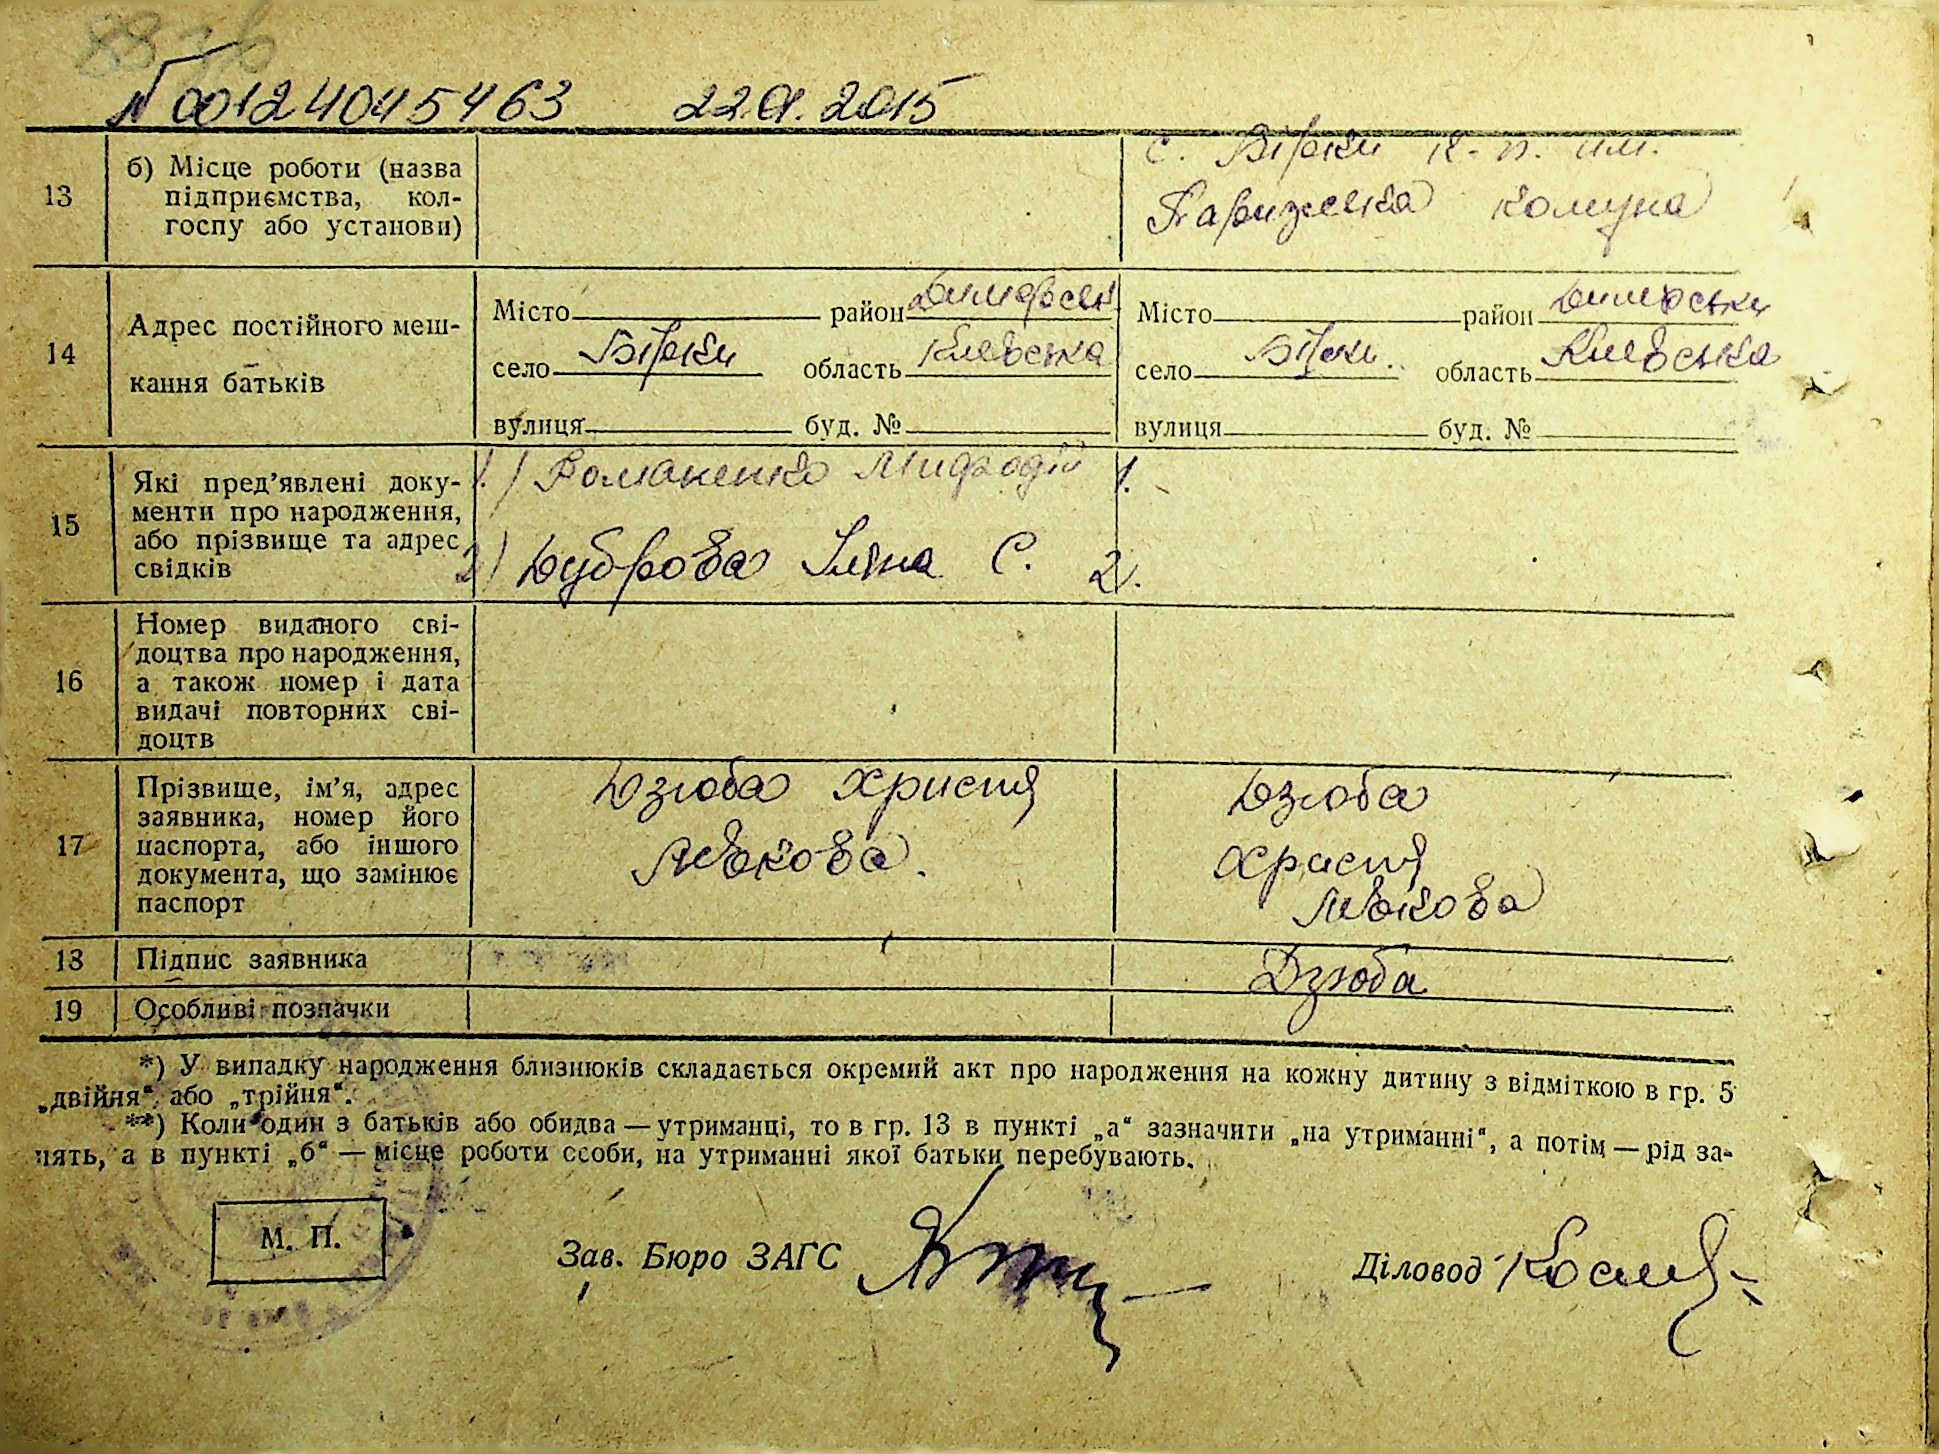 88
№ 00124045463 22.01.2015
13 б) Місце роботи (назва підприємства, кол-
госпу або установи)
с. Бірки к-п. им.
Паризська комуна
14 Адрес постійного меш-
кання батьків
Місто район Димерськ
село Бірки область Київська
вулиця буд. №
Місто район Димерськи
село Бірки область Київська
вулиця буд. №
15 Які пред’явлені доку-
менти про народження,
або прізвище та адрес
свідків
1) Романенко Мифодій
2) Дуброва С.
1.
2.
16 Номер виданого сві-
доцтва про народження,
а також номер і дата
видачі повторних сві-
доцтв
17 Прізвище, ім’я, адрес
заявника, номер його
паспорта, або іншого
документа, що замінює
паспорт
Дзюба Христя
Левкова.
Дзюба
Христя
Левкова
18 Підпис заявника Дзюба
19 Особливі позначки
*) У випадку народження близнюків складається окремий акт про народження на кожну дитину з відміткою в гр. 5
„двійня“ або „трійня“.
**) Коли один з батьків або обидва — утриманці, то в гр. 13 в пункті „а“ зазначити „на утриманні“, а потім — рід за-
нять, а в пункті „б“ — місце роботи особи, на утриманні якої батьки перебувають.
М. П.
Зав. Бюро ЗАГС
Діловод